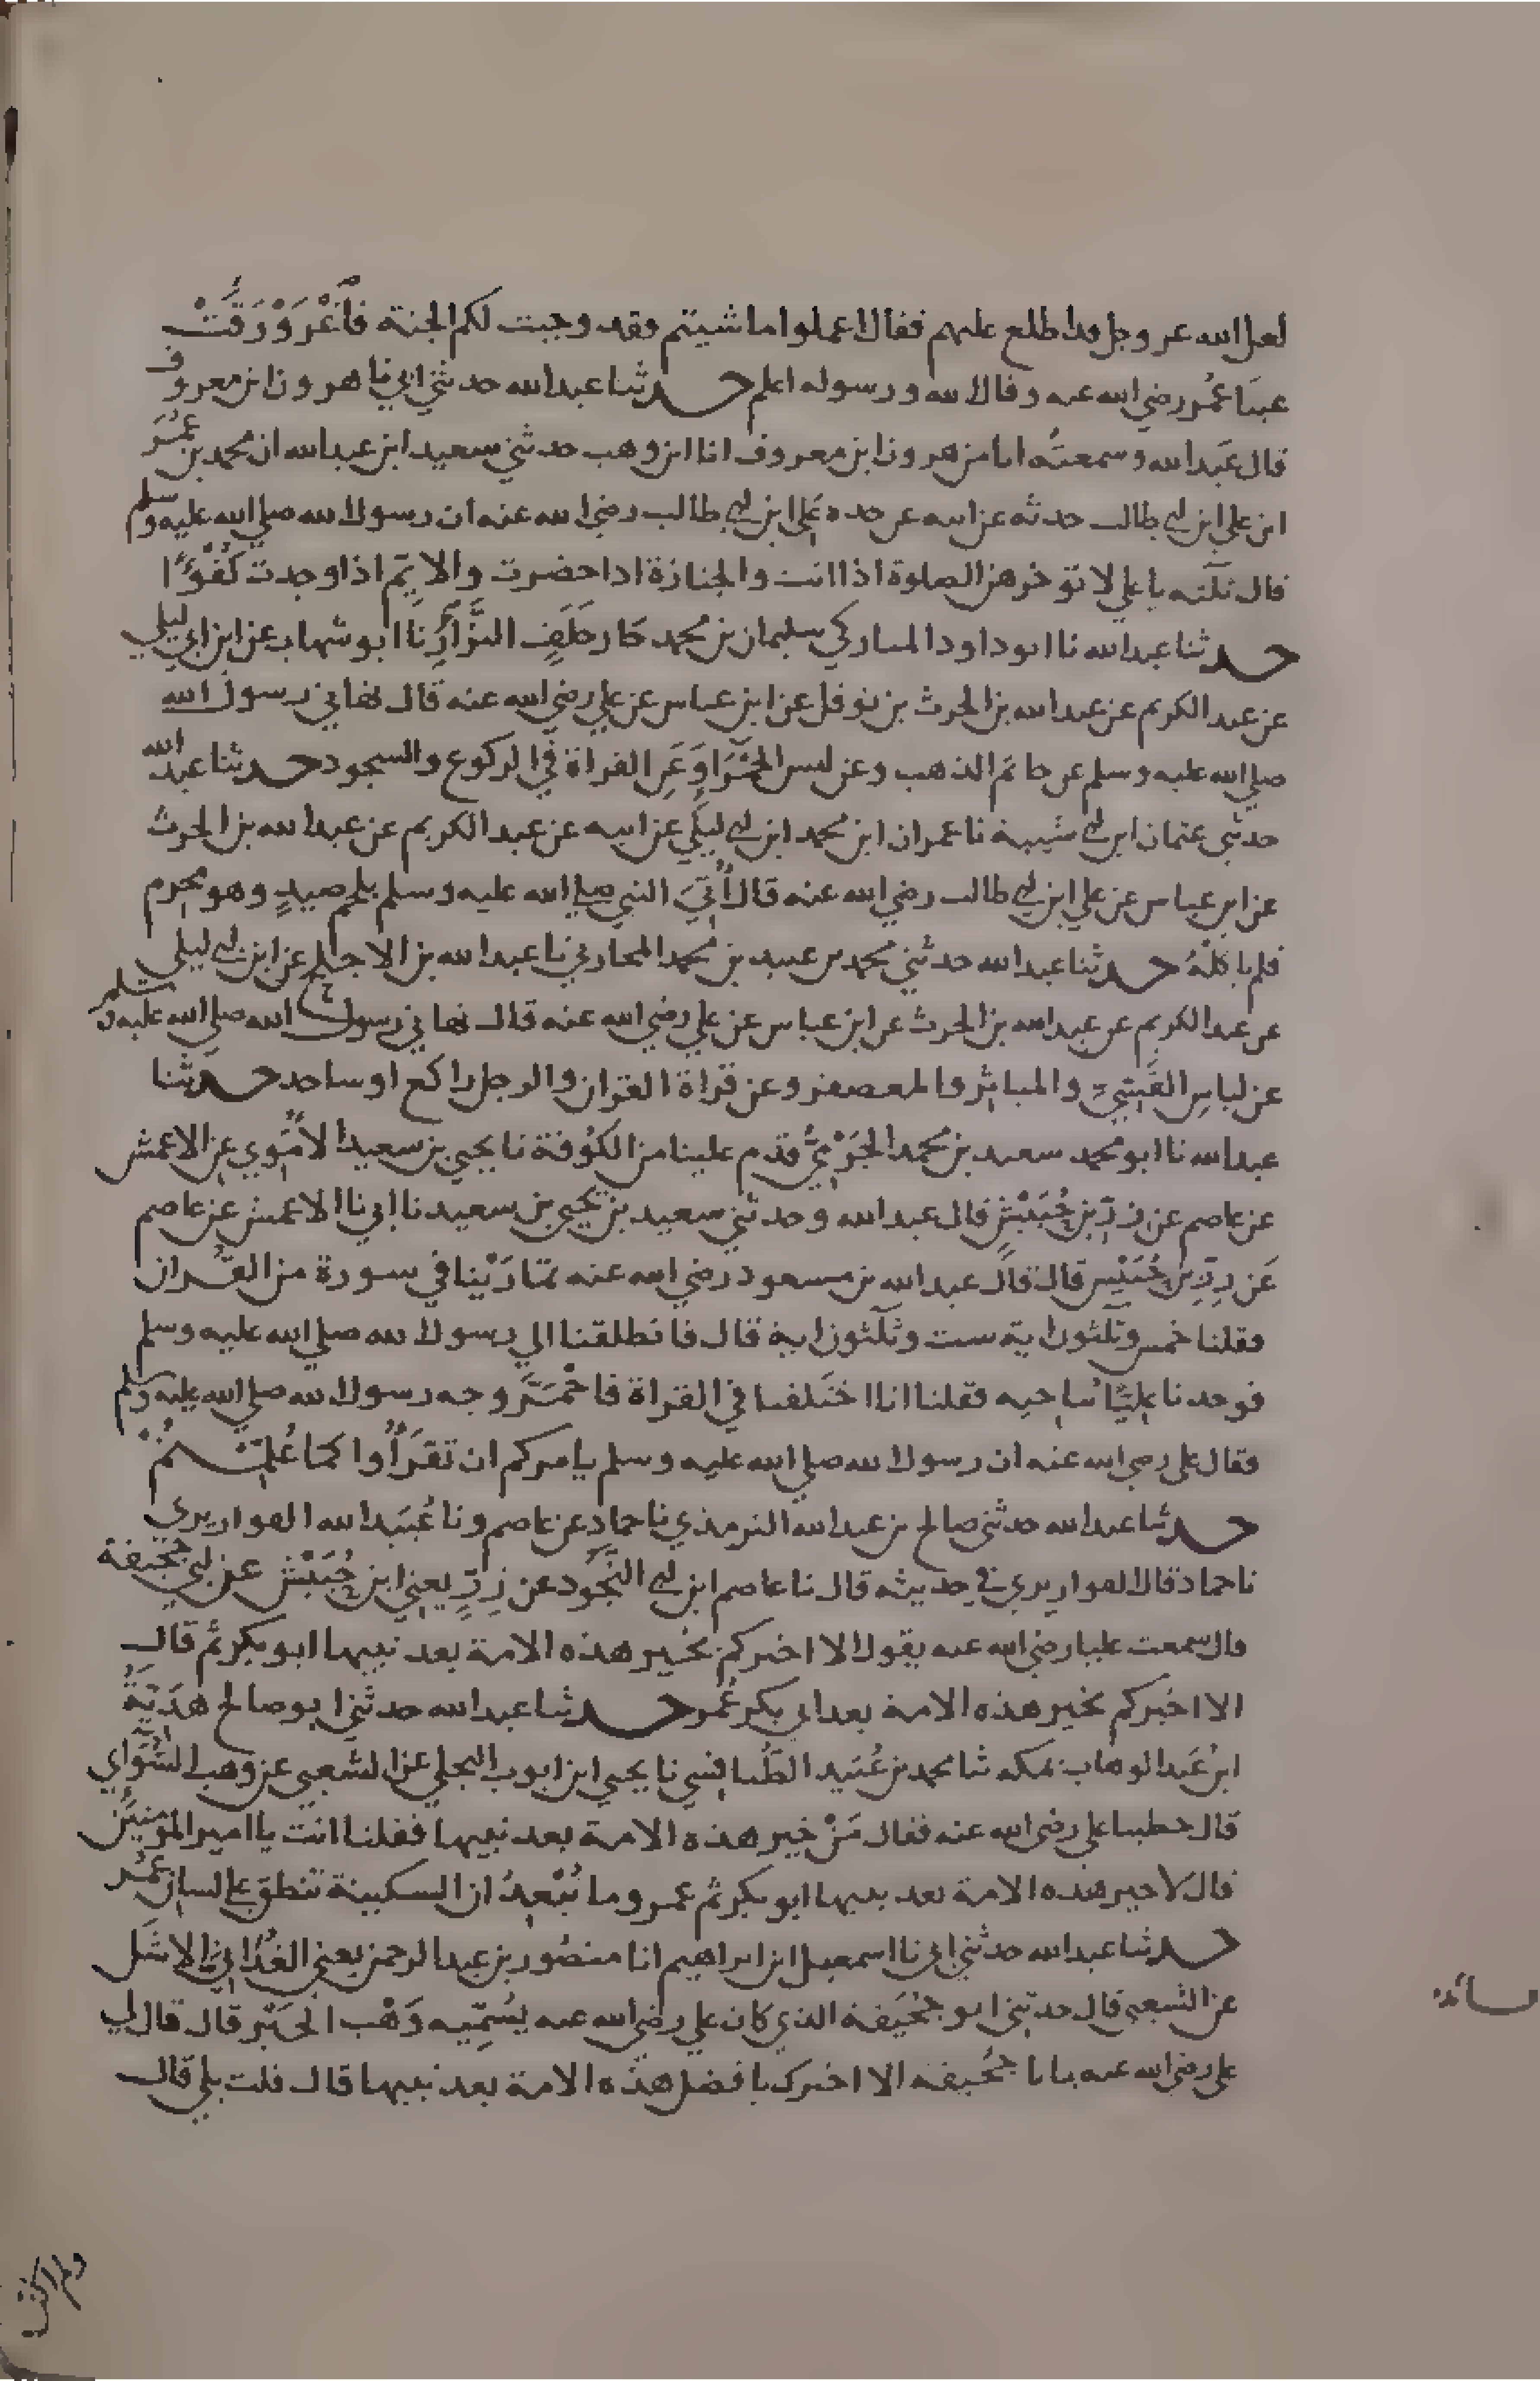 لعل الله عز وجل قد اطلع عليهم فقال اعملوا ما شيتم فقد وجبت لكم الجنة فَاغْرَوْرَقَتْ
عينا عُمر رضي الله عنه وقال الله ورسوله اعلم حدثنا عبد الله حدثني ابي نا هرون ابن معروف
قال عَبد الله وسمعتُه انا من هرون ابن معروف انا ابن وهب حدثني سعيد ابن عبد الله ان محمد بن عُمَر
ابن علي ابن ابي طالب حدثه عن ابيه عن جده عَلي ابن ابي طالب رضي الله عنه ان رسول الله صلي الله عليه وسلم
قال ثلثه يا علي لا توخرهن الصلوة اذا انت والجنازة اذا حضرت والايّم اذا وجدت كُفْوًا
حدثنا عبد الله نا ابو داود المباركي سليمان بن محمد جار خَلَفٍ البزَّارِ نا ابو شهاب عن ابن ابي ليلي
عن عبد الكريم عن عبد الله بن الحرث بن نوفل عن ابن عباس عن علي رضي الله عنه قال نهاني رسول الله
صلي الله عليه وسلم عن خاتم الذهب وعن لبس الحَمْرَا وَعَنِ القراة في الركوع والسجود حدثنا عبد الله
حدثني عثمان ابن ابي شيبة نا عمران ابن محمد ابن ابي ليلَي عن ابيه عن عبد الكريم عن عبد الله بن الحرث
عن ابن عباس عن علي ابن ابي طالب رضي الله عنه قال أُتِيَ النبي صلي الله عليه وسلم بلحم صيدٍ وهو محرم
فلم ياكلْهُ حدثنا عبد الله حدثني محمد بن عبيد بن محمد المحاربي نا عبد الله بن الاجلح عن ابن ابي ليلي
عن عبد الكريم عن عبد الله بن الحرث عن ابن عباس عن علي رضي الله عنه قال نهاني رسول الله صلي الله عليه وسلم
عن لباسِ القَسِّيِّ والمياثِر والمعصفر وعن قراة القران والرجل راكع او ساجد حدثنا
عبد الله نا ابو محمد سعيد بن محمد الجَرْمِيُّ قدم علينا من الكُوفة نا يحيي بن سعيد الاُمَوِي عن الاعمش
عن عاصم عن زِرِّ بن حُبَيْشٍ قال عبد الله وحدثني سعيد بن يحيي بن سعيد نا ابي نا الاعمش عن عاصم
عَن زِرِّ بن حُبَيْش قال قال عبد الله بن مسعود رضي الله عنه تمَارَيْنا في سورة من القُران
فقلنا خمس وثلثون اية ست وثلثون اية قال فانطلقنا الي رسول الله صلي الله عليه وسلم
فوجدنا عليًّا يُناجيه فقلنا انا اختَلفنا في القراة فاحْمَرَّ وجه رسول الله صلي الله عليه وسلم
فقال علي رضي الله عنه ان رسول الله صلي الله عليه وسلم يامركم ان تقرَأُوا كما عُلِّمْتُمْ
حدثنا عبد الله حدثني صالح بن عبد الله الترمذي نا حمادٍ عن عاصم ونا عُبَيد الله القواريري
نا حماد قال القواريري في حديثه قال نا عاصم ابن ابي النَّجُود عن زِرٍّ يعني ابن حُبَيْش عن ابي جُحَيفة
قال سمعت عليا رضي الله عنه يقول الا اخبركم بخير هذه الامة بعد نبيها ابو بكر ثم قال
الا اخبركم بخير هذه الامة بعد ابي بكر عُمر حدثنا عبد الله حدثني ابو صالح هَدِيَّةُ
ابنُ عَبد الوهاب بمكه ثنا محمد بن عُبَيد الطَّنافِسِي نا يحيي ابن ايوب البَجلي عن الشعبي عن وهب السُّوَآي
قال خطبنا علي رضي الله عنه فقال مَنْ خير هذه الامة بعد نبيها فقلنا انت يا امير المومنِيْن
قال لا خير هذه الامة بعد نبيها ابو بكر ثم عمر وما نُبْعِدُ ان السكينة تنطق علي لسان عُمَر
حدثنا عبد الله حدثني ابي نا اسمعيل ابن ابراهيم انا منصُور بن عبد الرحمن يعني الغُدَانِيَّ الاشَل
عن الشعبي قال حدثني ابو جُحَيفة الذي كان علي رضي الله عنه يُسَمِّيه وَهْب الخَيْر قال قال لي
علي رضي الله عنه يا ابا جُحيفة الا اخبرك بافضل هذه الامة بعد نبيها قال قلت بلي قال
ولم اكن